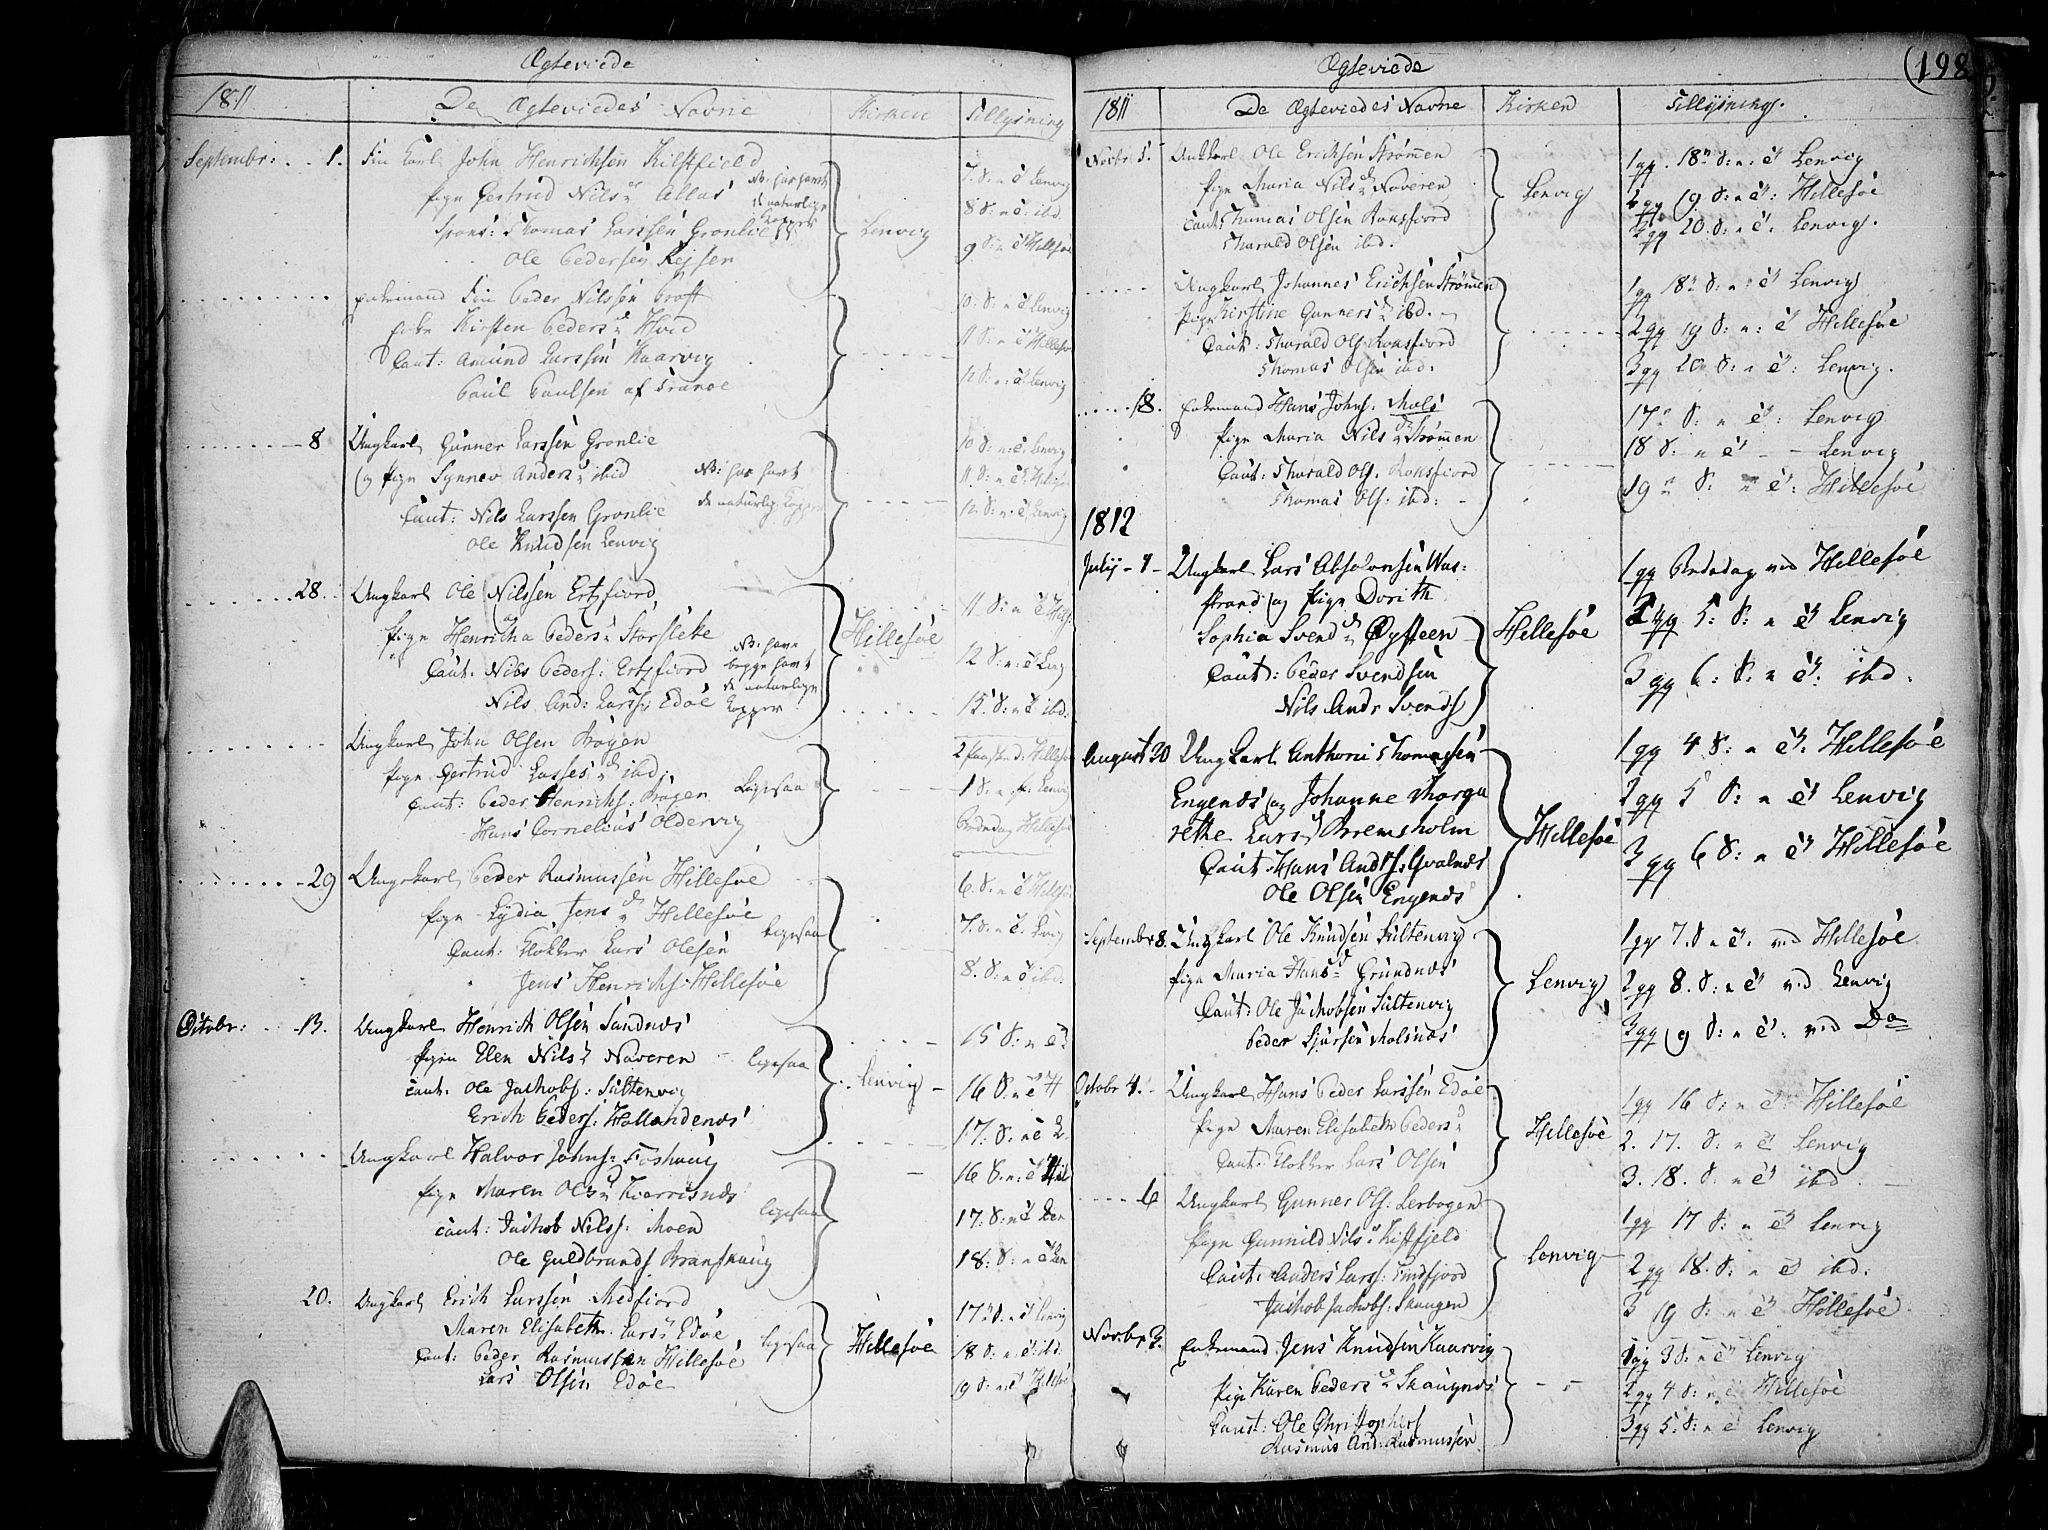 Ægteviede
1811
De Ægteviedes Navne
Kirken
Tillysning
Septembr: 1.
Fin Karl John Henrichsen Kilsfield
Pige Gertrud Nilsd Allas
NB: har havt de naturlige Kopper
Spons: Thomas Larssen Gronlie
Ole Pedersen Rejsen
Lenvig
7. S. n. e. Lenvig
8 S: n e: ibd.
9 S: n e Hillesøe
Enkemand Fin Peder Nilssen
Enke Kirsten Pedersd
Caut: Amund Larssen Kaarvig
Paul Paulsen af Tranøe
10. S: n e Lenvig
11 S: n e Hillesøe
12 S: n: e: Lenvig
8
Ungkarl Gunner Larssen Gronlie
og Pige Synnev Andersd ibid
NB: har havt
de naturlig Kopper
Caut: Nils Larssen Gronlie
Ole Knudsen Lenvig
10 S: n: e. Lenvig
11 S: n: e: Hillesøe
12. S: n: e Lenvig
28.
Ungkarl Ole Nilssen Ertzfiord
Pige Henricha Pedersd Storslete
Caut: Nils Peders: Ertzfiord
Nils And: Larss: Edøe
NB: have begge havt de naturlige Kopper
Hillesøe
11 S: n e Hills.
12 S: n: e Lenv
13. S: n e ibd.
Ungkarl John Olsen Bragen
Pige Gertrud Lassesd ibd.
Caut: Peder Henrichs: Bragen
Hans Cornelius Oldervig
Ligesaa
1 S: n. Lenvig
Bededag Hillesøe
29
Ungkarl Peder Rasmussen Hillesøe
Pige Lydia Jensd Hillesøe
Caut: Klokker Lars Olesen
Jens Henrichs: Hillesøe
Ligesaa
6. S: n e Hillesø
7. S. n e. Lenvig
8. S: n e ibd.
Octobr: 13.
Ungkarl Henrich Olsen Sandnæs
Pigen Elen Nilsd Naveren
Caut: Ole Jachobs: Sultenvig
Erich Peders: Hollendenæs
ligesaa
Lenvig
15 S: n e
16 S: n e H
17: S: n e L.
Ungkarl Halvor Johns: Foshaug
Pige Maren Olsd Kverrisnæs
Caut: Jachob Nilss: Moen
Ole Guldbrands Brandhaug
ligesaa
16 S: n: e Hil
17. S: n e Len
18: S: n e Len
20.
Ungkarl Erich Larssen Medfiord
Maren Elisabeth Larsd Edøe
Caut: Peder Rasmussen Hillesøe
Lars Olsen Edøe
ligesaa
Hillesøe
17 S: n e Lenvig
18 S: n e: ibd:
19 S: n: e Hillesøe
Ægteviede
198
1811
De Ægteviedes Navne
Kirken
Tillysning.
Novbr 5.
Ungkarl Ole Erichsen Strømmen
Pige Maria Nilsd Naveren
Caut: Thomas Olsen Roksfiord
Tharald Olsen ibd.
Lenvig
1 gg. 18 S: n: e Lenvig
2 gg 19 S: n e: Hillesøe
3 gg 20. S: n e: Lenvig.
Ungkarl Johannes Erichsen Strømmen
Pige Kirstine Gunnersd ibd.
Caut: Tharald Ols: Roksfiord
Thomas Olsen ibd.
1 gg 18 S: n: e Lenvig
2 gg 19 S: n: e Hillesøe
3 gg 20 S: n e: Lenvig.
18.
Enkemand Hans Johns: Mols
Pige Maria Nilsd Strømmen
Caut: Tharald Ols. Roksfiord
Thomas Ols: ibd:
17 S: n e: Lenvig
18 S: n e Lenvig
19 S: n e: Hillesøe
1812
July 1
Ungkarl Lars Absolonsen Was-
strand og Pige Dorith
Sophia Svendd Øysteen
Caut: Peder Svendsen
Nils Andr Svends
Hillesøe
1 gg Bededag ved Hillesøe
2 gg 5: S: n e Lenvig
3 gg 6: S: n e: ibd.
August 20
Ungkarl Anthoni Thomassen
Engenæs og Johanne Marga
rethe Larsd Bremsholm
Caut: Hans Ands. Gvalnæs
Ole Olsen Engenæs
Hillesøe
1 gg 4 S: n e: Hillesøe
2 gg 5 S: n e Lenvig
3 gg 6 S: n e Hillesøe
Septembr 8.
Ungkarl Ole Knudsen Sultenvig
Pige Maria Hansd Grundnæs
Caut: Ole Jachobsen Sultenvig
Peder Sjursen Molsnæs
Lenvig
1 gg 7. S n e. ved Hillesøe
2 gg 8. S: n e ved Lenvig
3 gg 9 S: n e: ved Do
Octobr 4.
Ungkarl Hans Peder Larssen Edøe
Pige Maren Elisabeth Pedersd
Caut. Klokker Lars Olsen
Hillesøe
1 gg 16 S: n e Hillesøe
2. 17. S: n e Lenvig
3. 18. S: n e ibd.
6
Ungkarl Gunner Ols. Lerbogen
Pige Gunnild Nilsd Kistfjeld
Caut. Anders Larss: Finfjord
Jachob Jachobs. Skaugen
Lenvig
1 gg 17 S: n e Lenvig
2 gg 18. S: n e ibd:
3 19 S: n e Hillesøe
Novbr 3.
Enkemand Jens Knudsen Kaarvig
Pige Karen Pedersd Skaugnæs
Caut: Ole Christophers
Rasmus And: Rasmussen
1 gg 3 S: n e Lenvig
2 gg 4 S: n e Hillesøe
3 gg 5: S: n e Lenvig